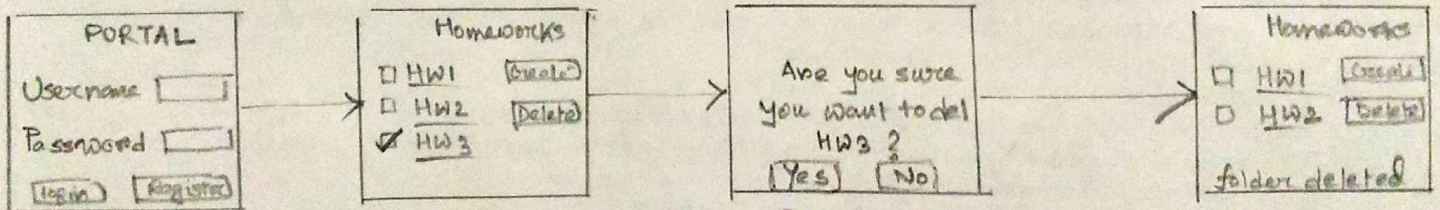 PORTAL
Username
Password
Login Register
Homeworks
HW1 Create
HW2 Delete
HW3
Are you sure
you want to del
HW3 ?
Yes No
Homeworks
HW1 Create
HW2 Delete
folder deleted